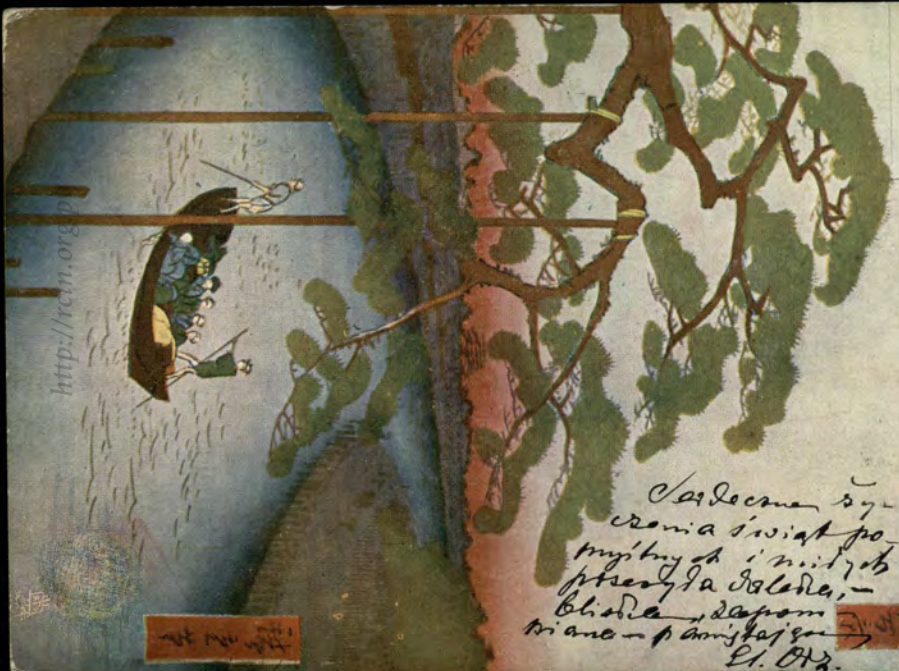 http://rcin.org.pl
Serdeczne ży-
czenia świąt po-
myślnych i miłych
przesyła daleka, –
bliska, zapom
niana – pamiętająca
El. Orz.